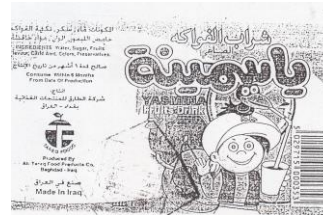 المكونات: ماء، سكر، نكهة الفواكه
حامض الليمون، الوان، مواد حافظة
INGREDIENTS: Water, Sugar, Fruits
Flavour, Citric Acid, Colors, Preservatives.
صالح لمدة ٦ أشهر من تاريخ الانتاج
Consume Within 6 Months
From Date Of Production
انتاج:
شركة الطارق للمنتجات الغذائية
بغداد - العراق
TAREQ FOODS
Produced By
AL Tareq Food Products Co.
Baghdad - Iraq
صنع في العراق
Made In Iraq
شراب الفواكه
ياسمينة
YASMENA
fruits drink